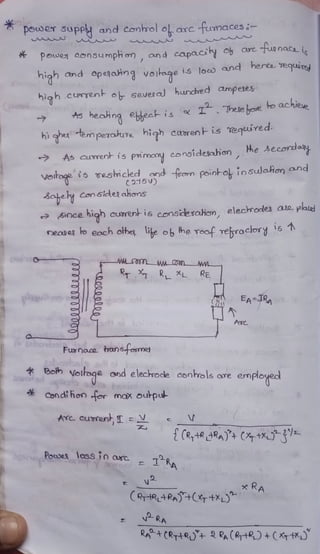 * power supply and control of arc furnaces:-
* power consumption, and capacity of arc fuenace is
high and operating voltage is low and hence required
high current of several hundred amperes.
→ As heating effect is ∝ I². Therefore to achieve
higher temperature high current is required.
→ As current is primary consideration, the secondary
voltage is restricted and from point of insulation and
(275V)
safety considerations
→ since high current is consideration, electrodes are placed
nearer to each other life of the roof refractory is ↑
R_T X_T R_L X_L R_E
E_A=IR_A
Arc
Furnace transformer
* Both voltage and electrode controls are employed
* condition for max output
Arc current, I = V/Z = V/{(R_T+R_L+R_A)²+(X_T+X_L)²}^1/2
Power loss in arc = I²R_A
= V²/((R_T+R_L+R_A)²+(X_T+X_L)²) × R_A
= V²R_A/(R_A²+(R_T+R_L)²+2R_A(R_T+R_L)+(X_T+X_L)²)